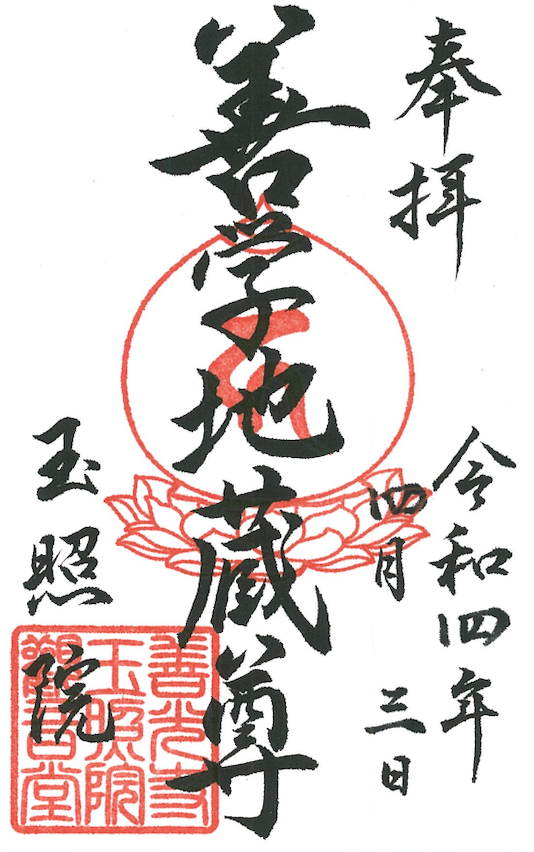 奉拝
令和四年
四月三日
善学地蔵尊
玉照院
善光寺
玉照院
観音堂